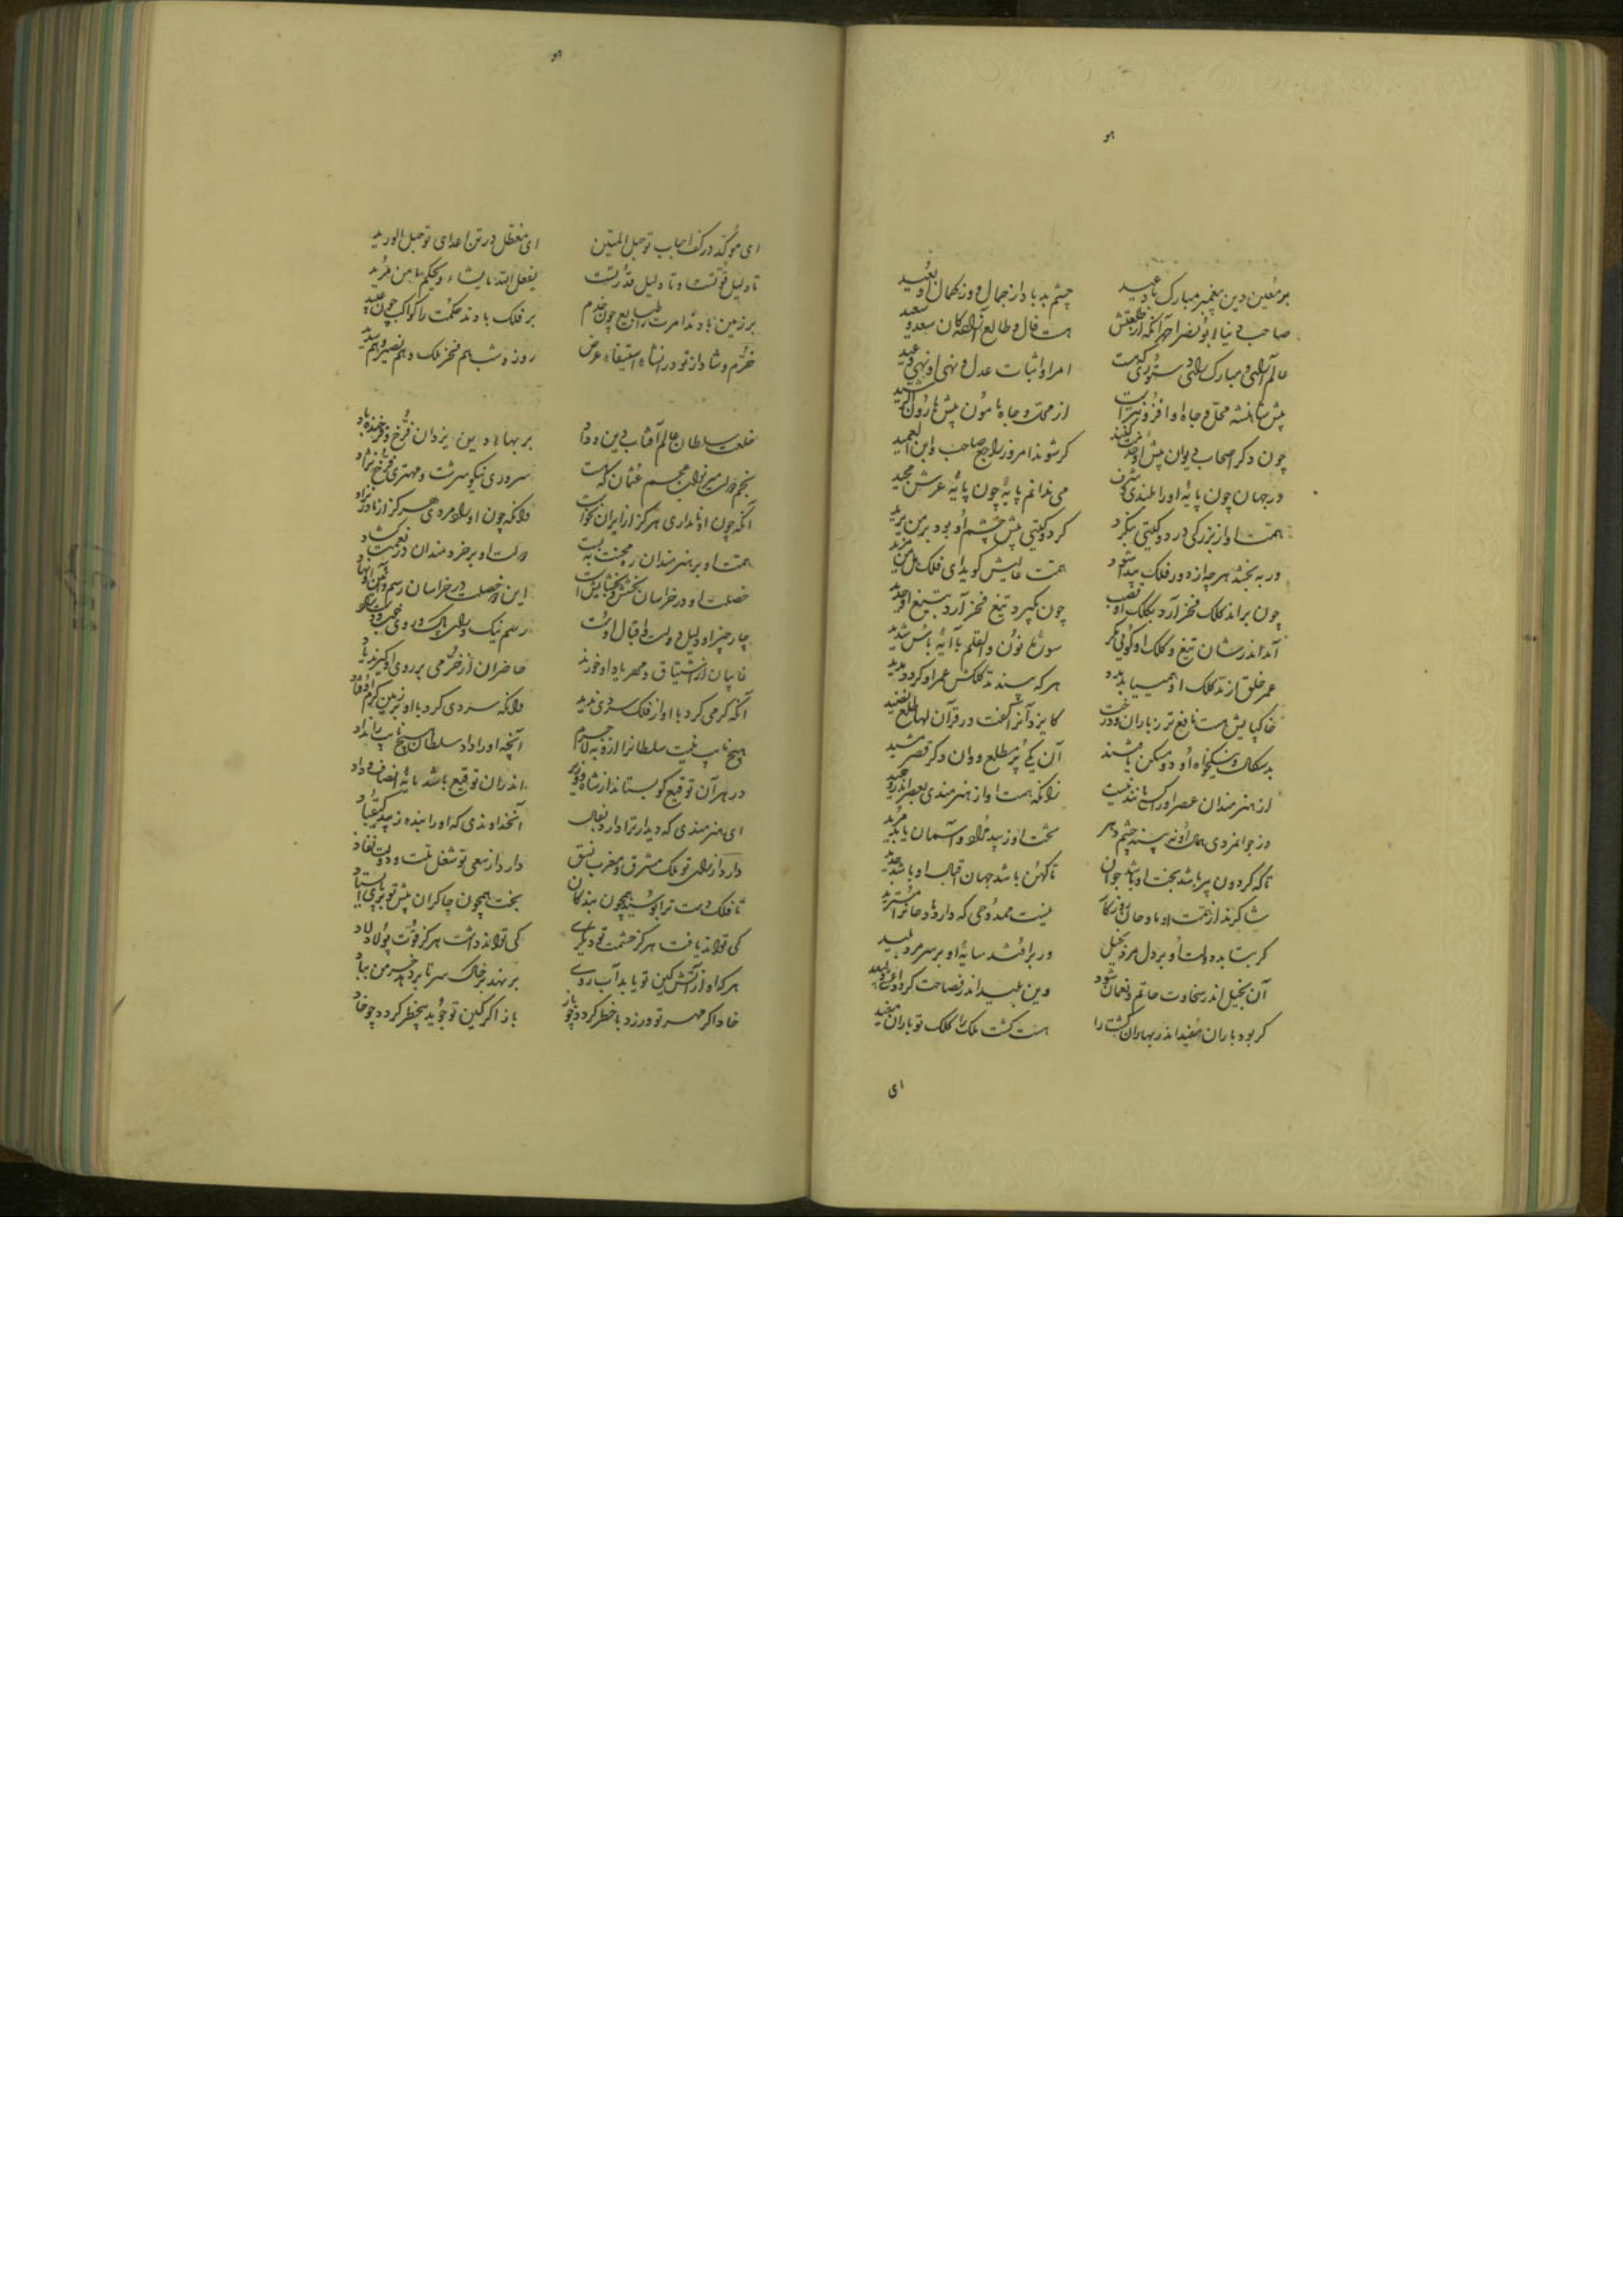 هو
بر معین دین پیغمبر مبارک باد عید
چشم بد باد از جمال و وز کمال او بعید
صاحب دنیا ابونصر احمد آنکه از طلعتش
هست فال و طالع
عالم آرائی و مبارک رائی
امر او اثبات عدل و نهی او نهی وعید
پیش شاهنشه محل و جاه او افزونتر است
از محل و جاه هامون پیش هارون الرشید
چون ذکر اصحاب دیوان پیش او
کر شوند امروز راجع صاحب و ابن العمید
در جهان چون پایه او را بلندی و شرف
می ندانم پایه چون پایه عرش مجید
همت او از بزرکی در دو کیتی ننکرد
کر دو کیتی پیش چشم او بود بر من یزید
ور به بخشد هرچه از دور فلک پیدا شود
همت عالیش کوید ای فلک هل من مزید
چون براند کلک فخر آرد بکلک او قضب
چون بکیرد تیغ فخر آرد بتیغ او حدید
آمد اندر شان تیغ و کلک او کوئی مکر
سورة نون والقلم با آیه باس شدید
عمر خلق از مد کلک او همی یابد مدد
هر که بیند مد کلکش عمر او کردد مدید
خاک پایش هست نافع تر ز باران و درخت
کایزد آنرا کفت در قرآن لها طلع نضید
بدسکال و نیکخواه او دو مسکن یافتند
آن یکی پر مطلع و وان دکر قصر مشید
از هنرمندان عصر او را کسی مانند نیست
زانکه هست او از هنرمندی بعصر اندر وحید
وز جوانمردی همال او نه بیند چشم دهر
بخت او ز پید مراد و آسمان باید مرید
تا که کردون پیر باشد بخت او باشد جوان
تا کهن باشد جهان اقبال او باشد جدید
شاکرند از همت او مادحان روزکار
نیست ممدوحی که دارد مادحانرا
کر بتابد دولت او بر دل مرد بخیل
ور برافتد سایه او بر سر مرد بلید
آن بخیل اندر سخاوت حاتم و نعمان شود
وین بلید اندر فصاحت کردد
کر بود باران مفید اندر بهاران کشت را
هست کشت ملک را کلک تو باران مفید
ای
هو
ای مؤکد در کف احباب تو حبل المتین
ای معطل در تن اعدای تو حبل الورید
تا دلیل قوتست و تا دلیل قدرتست
یفعل الله ما یشاء و یحکم ما یرید
بر زمین بادند امرت را طبایع چون خدم
بر فلک بادند حکمت را کواکب چون عبید
خرم و شاد از تو در انشاء و استیفاء و عرض
روز و شب هم فخر ملک و هم نصیر و هم سدید
خلعت سلطان عالم آفتاب دین و داد
بر بهاء دین یزدان فرخ و فرخنده باد
نجم دولت میر نواب عثمان که هست
سروری نیکو سرشت و مهتری فرخ نژاد
آنکه چون او نامداری هرکز از ایران نخواست
وانکه چون او راد مردی هرکز از مادر نزاد
همت او بر هنرمندان در محنت ببست
دولت او بر خردمندان در نعمت کشاد
خصلت او در خراسان بخشش و بخشایش است
این دو خصلت در خراسان رسم و آئین او نهاد
چار چیز او دلیل دولت و اقبال اوست
رسم نیک و رای پاک و روی خوب و دست راد
غایبان از اشتیاق و مهر یاد او خورند
حاضران از خرمی بر روی او کیرند یاد
آنکه کرمی کرد با او از فلک سردی ندید
وانکه سردی کرد با او بر زمین کرم اوفتاد
هیچ نایب نیست سلطانرا از و به لاجرم
آنچه او را داد سلطان هیچ نایب را نداد
در هر آن توقیع کو بستاند از شاه و وزیر
اندر آن توقیع باشد مایه انصاف و داد
ای هنرمندی که دیدار ترا دارد بفال
آنخداوندی که او را بنده زیبد کیقباد
دارد از رای تو ملک مشرق و مغرب نسق
دارد از سعی تو شغل ملت و دولت نفاذ
تا فلک دست ترا بوسید همچون بندکان
بخت همچون چاکران پیش تو بر پای ایستاد
کی تواند یافت هرکز حشمت تو دیکری
کی تواند داشت هرکز قوت پولاد لاد
هر که او از آتش کین تو یابد آب روی
بر نهد بر خاک سر تا بر دهد خرمن بباد
خاد اکر مهر تو ورزد با خطر کردد چو باز
باز اکر کین تو جوید بیخطر کردد چو خاد